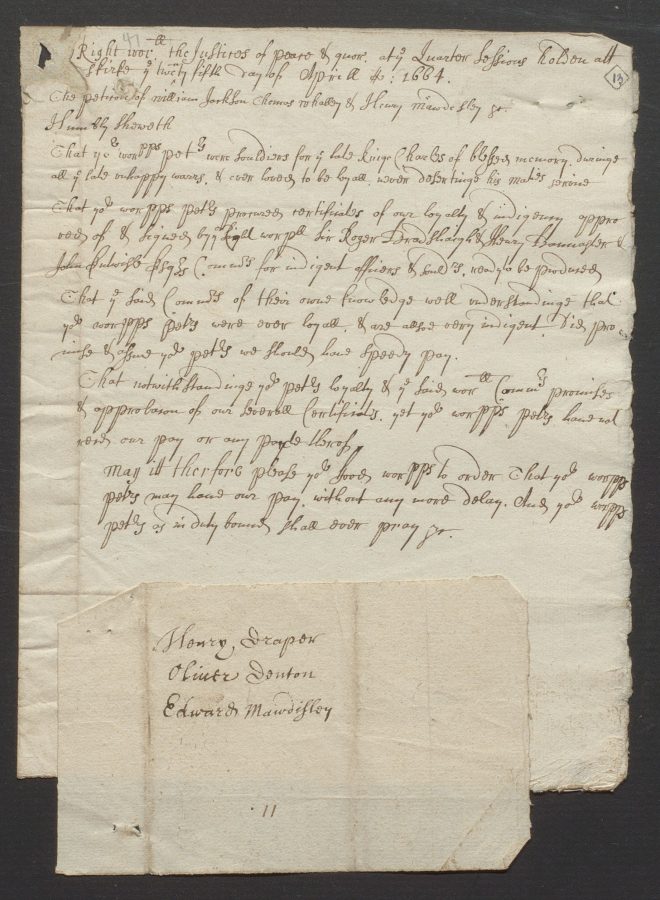 47
13
Right worll the Justices of peace & quor. at ye Quarter Sessions holden att
ye twenty fifth day of Aprill 1664.
The petition of William Jackson Thomas & Henry Mawdesley &c.
Humbly sheweth
That yor worpps petrs were souldiers for ye late Kinge Charles of blessed memory, duringe
all ye late unhappy warrs, & ever loved to be loyall, never desertinge his Mates service
That yor worpps petrs procured certificates of our loyalty & indigency appro
ved of & signed by ye Right worpll Sir Roger Bradshaigh & Henry Bannaster &
John Esqrs Comrs for indigent officers & sould's, ready to be produced
That ye said Comrs of their owne knowledge well understandinge that
yor worpps petrs were ever loyall, & are allsoe very indigent. Did pro
mise & assure yor petrs we should have speedy pay.
That notwithstandinge yor petrs loyalty & ye said worll Comrs promises
& approbacon of our severall Certificates, yet yor worpps petrs have not
recd our pay or any parte therof
May itt therfore please yor good worpps to order That yor worpps
petrs may have our pay, without any more delay. And yor worpps
petrs as in duty bound shall ever pray &c.
Henry Draper
Oliver Denton
Edward Mawdisley
11